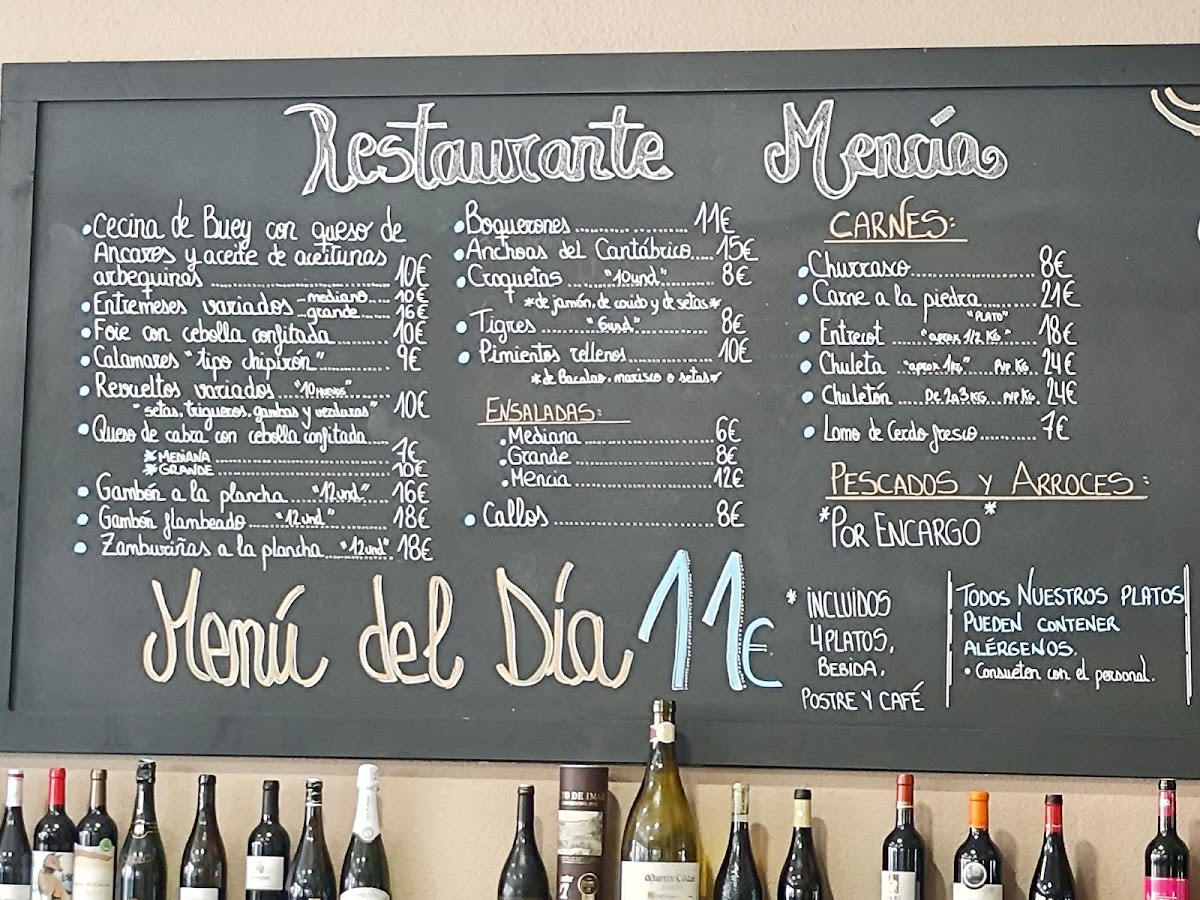 Restaurante Mencía
• Cecina de Buey con queso de
Ancares y aceite de aceitunas
arbequinas .......... 10€
• Entremeses variados mediano .... 10€
grande .... 16€
• Foie con cebolla confitada .......... 10€
• Calamares "tipo chipirón" .......... 9€
• Revueltos variados "10 HUEVOS"
"setas, trigueros, gambas y verduras" 10€
• Queso de cabra con cebolla confitada....
* MEDIANA .......... 7€
* GRANDE .......... 10€
• Gambón a la plancha .... "12und" .... 16€
• Gambón flambeado .... "12und" .... 18€
• Zamburiñas a la plancha .... "12und" 18€
• Boquerones .......... 11€
• Anchoas del Cantábrico..... 15€
• Croquetas .... "10und" .... 8€
*de jamón, de cocido y de setas*
• Tigres .... "6und" .... 8€
• Pimientos rellenos .......... 10€
*de Bacalao, marisco o setas*
ENSALADAS:
• Mediana .......... 6€
• Grande .......... 8€
• Mencia .......... 12€
• Callos .......... 8€
CARNES:
• Churrasco .......... 8€
• Carne a la piedra .......... 21€
"PLATO"
• Entrecot "aprox 1/2 KG" 18€
• Chuleta .... "aprox 1kg" .... PVP KG. 24€
• Chuletón .... De 2a3 KG .... PVP KG. 24€
• Lomo de Cerdo fresco .......... 7€
PESCADOS Y ARROCES:
*POR ENCARGO*
Menú del Día 11€
* INCLUIDOS
4 PLATOS,
BEBIDA,
POSTRE Y CAFÉ
TODOS NUESTROS PLATOS
PUEDEN CONTENER
ALÉRGENOS.
• Consulten con el personal.
Martín Códax
7